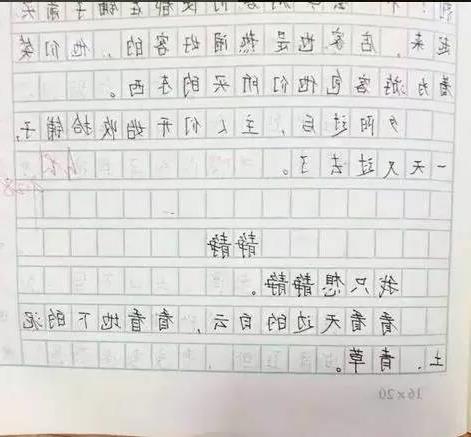 起来，店客也是热闹好客的，他们笑
着为游客包他们所买的东西。
夕阳过后，主人们开始收拾铺子，
一天又过去了。
静静
我只想静静。
看看天边的白云，看看地下的泥
土，青草。
16×20